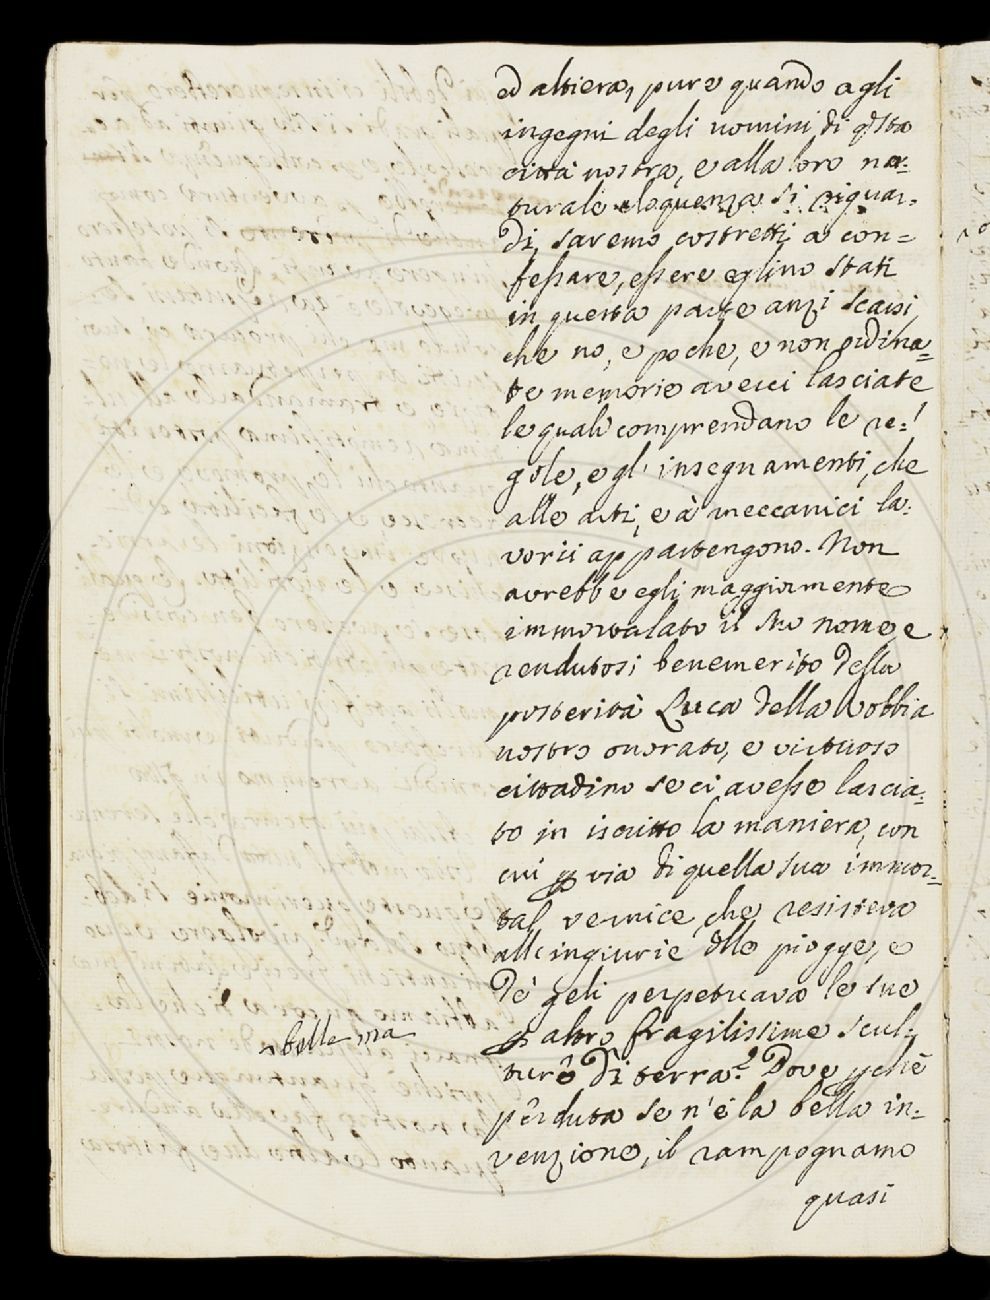 ed altiera, pure quando agli
ingegni degli uomini di qsta
città nostra, e alla loro na=
turale eloquenza si riguar=
di, saremo costretti a con=
fessare, essere eglino stati
in questa parte anzi scarsi,
che no, e poche, e non ordina=
te memorie averci lasciate
le quali comprendano le re=
gole, e gl' insegnamenti, che
alle arti, e à meccanici la=
vorii appartengono. Non
avrebbe egli maggiormente
immortalato il suo nome, e
rendutosi benemerito della
posterità Luca della Robbia
nostro onorato, e virtuoso
cittadino se ci avesse lascia=
to in iscritto la maniera, con
cui p via di quella sua immor=
tal vernice che resisteva
all'ingiurie dlle piogge, e
de' geli perpetuava le sue
p altro fragilissime scul=
belle ma
ture di terra? Dove pchè
perduta se n'è la bella in=
venzione, il rampognamo
quasi